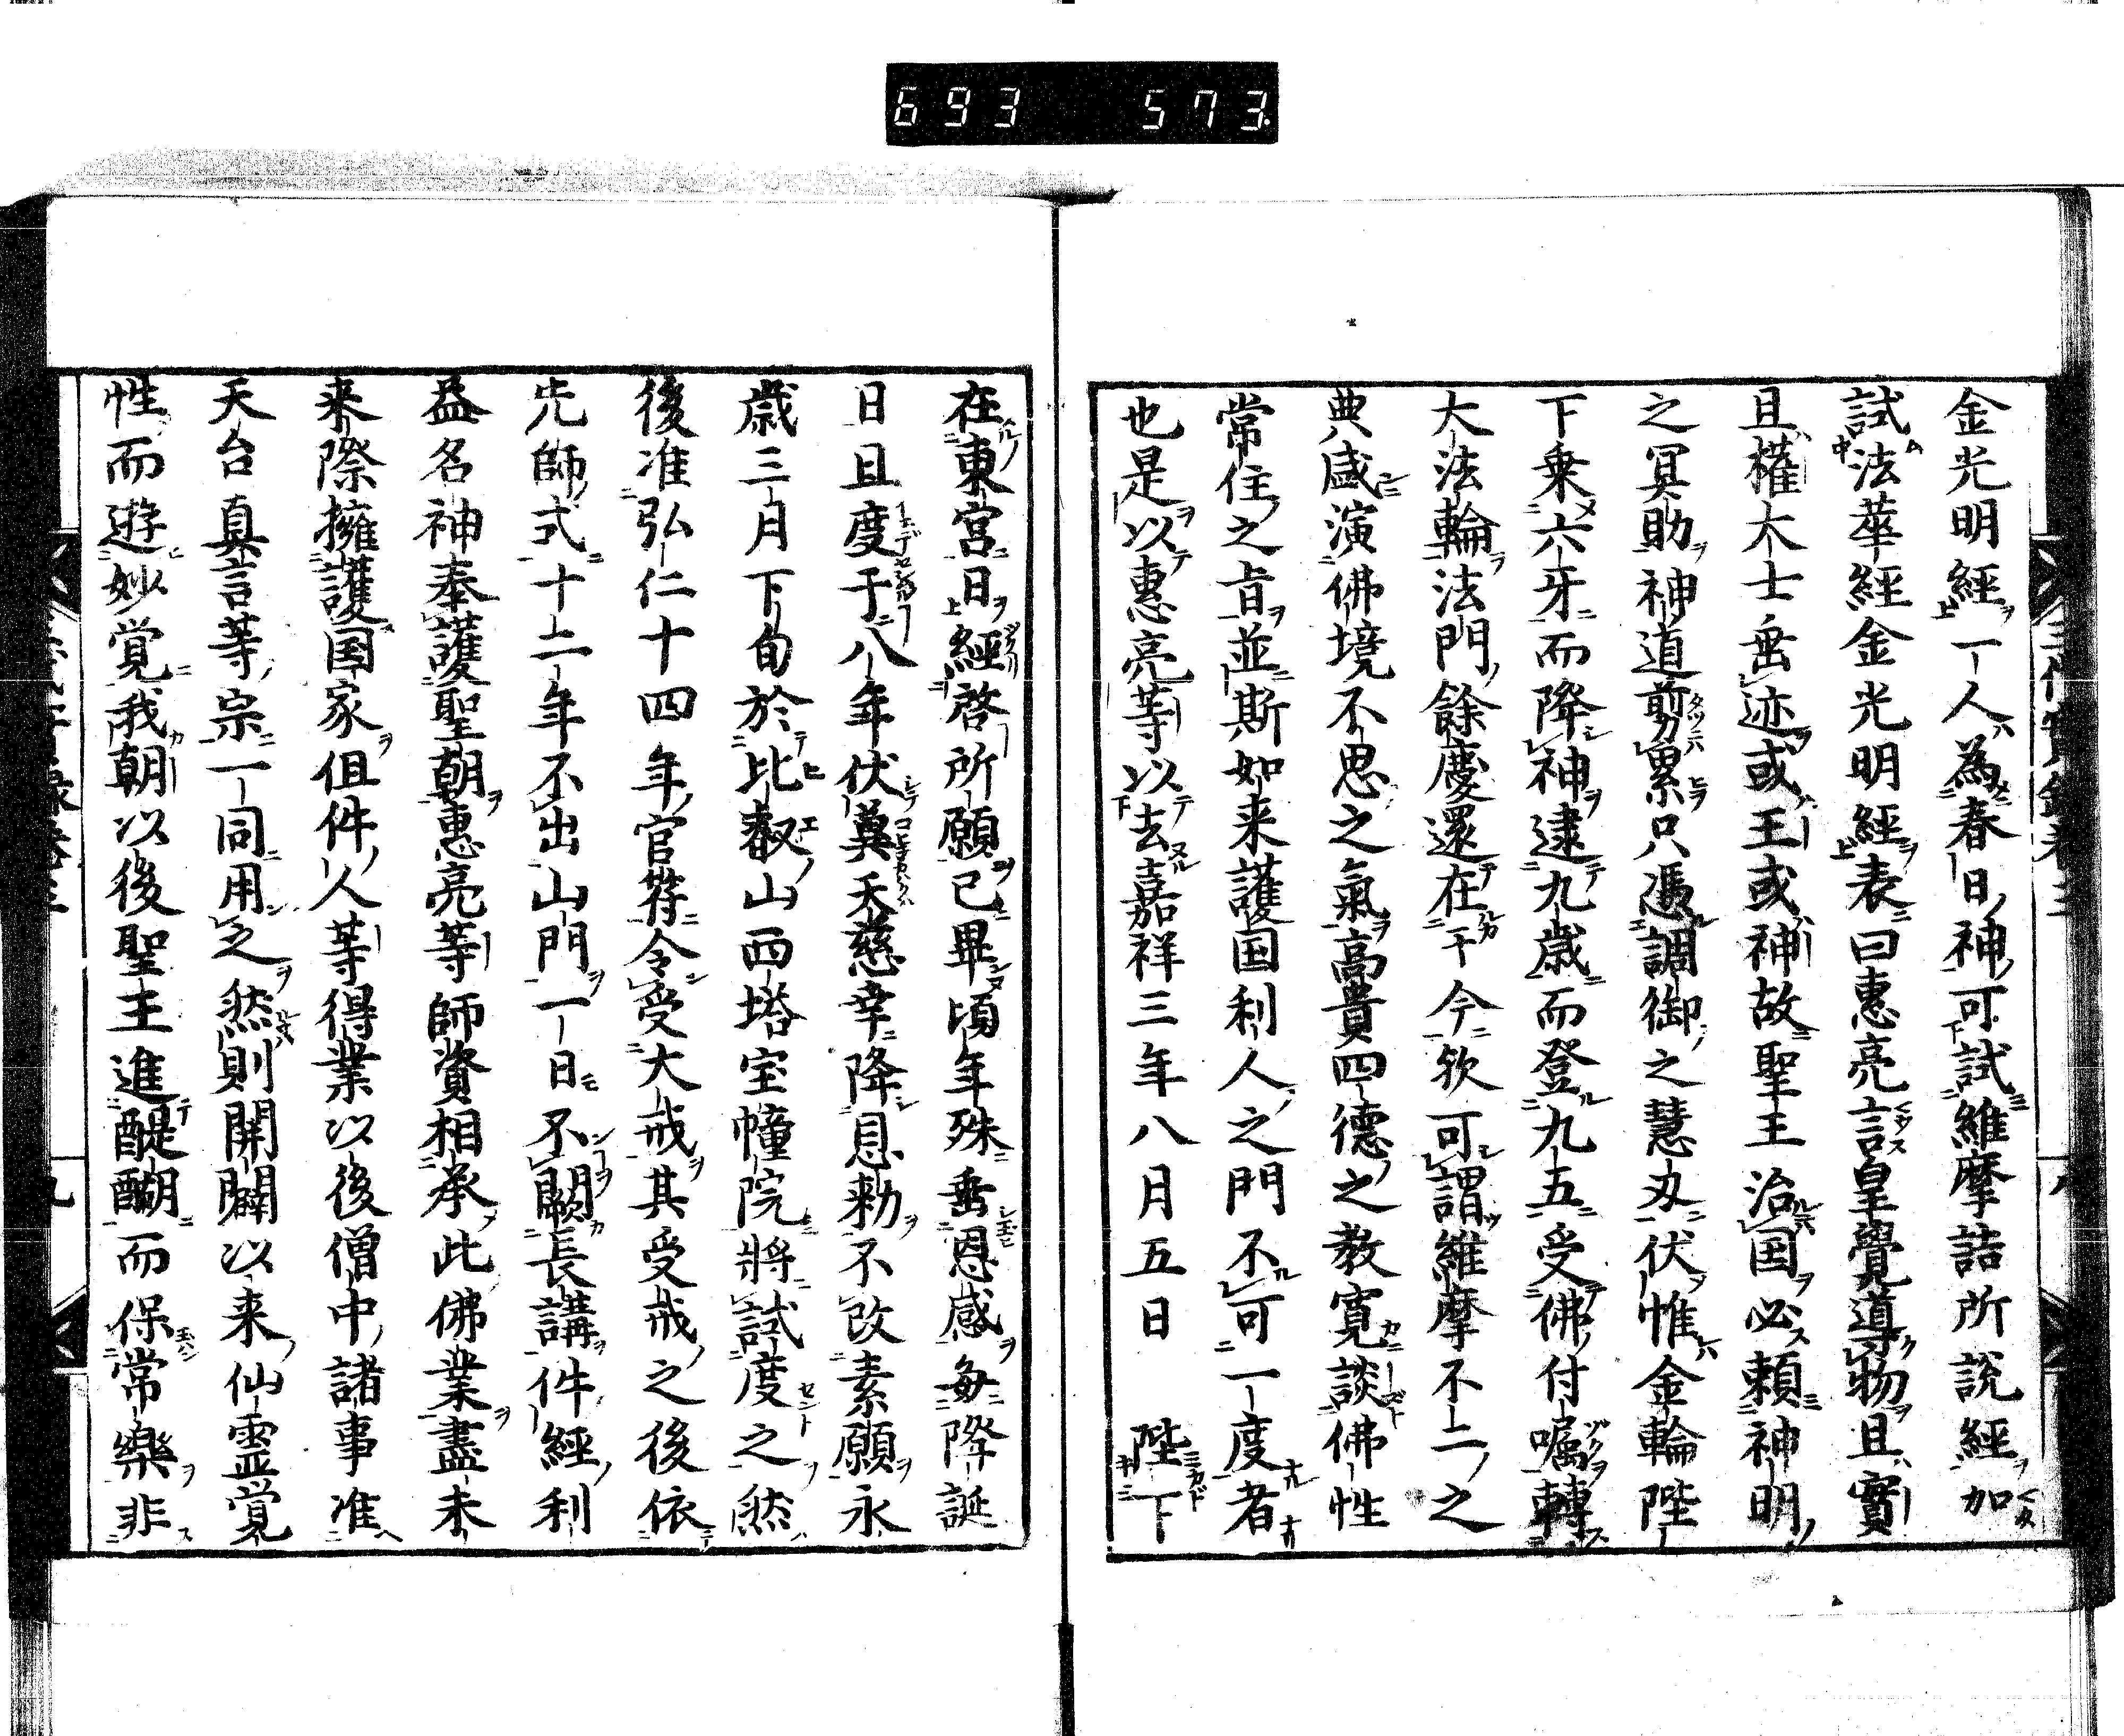 693 573
金光明經一人為春日神可試維摩詰所說經加
試法華經金光明經表曰惠亮言皇覺導物且實
且權大士垂迹或王或神故聖王治国必頼神明
之冥助神道剪累只馮調御之慧刃伏惟金輪陛
下乗六牙而降神逮九歳而登九五受佛付囑轉
大法輪法門餘慶還在于今欤可謂維摩不二之
典盛演佛境不思之氣高貴四德之教寛談佛性
常住之旨並斯如来護国利人之門不可一度者
也是以惠亮等以去嘉祥三年八月五日 陛下
在東宮日經啓所願已畢頃年殊垂恩感每降誕
日且度于八年伏冀天慈幸降恩勅不改素願永
歳三月下旬於比叡山西塔宝幢院將試度之然
後准弘仁十四年官符令受大戒其受戒之後依
先師式十二年不出山門一日不闕長講件經利
益名神奉護聖朝惠亮等師資相承此佛業盡未
来際擁護国家但件人等得業以後僧中諸事准
天台真言等宗一同用之然則開闢以来仙霊覚
性而遊妙覚我朝以後聖王進醍醐而保常樂非